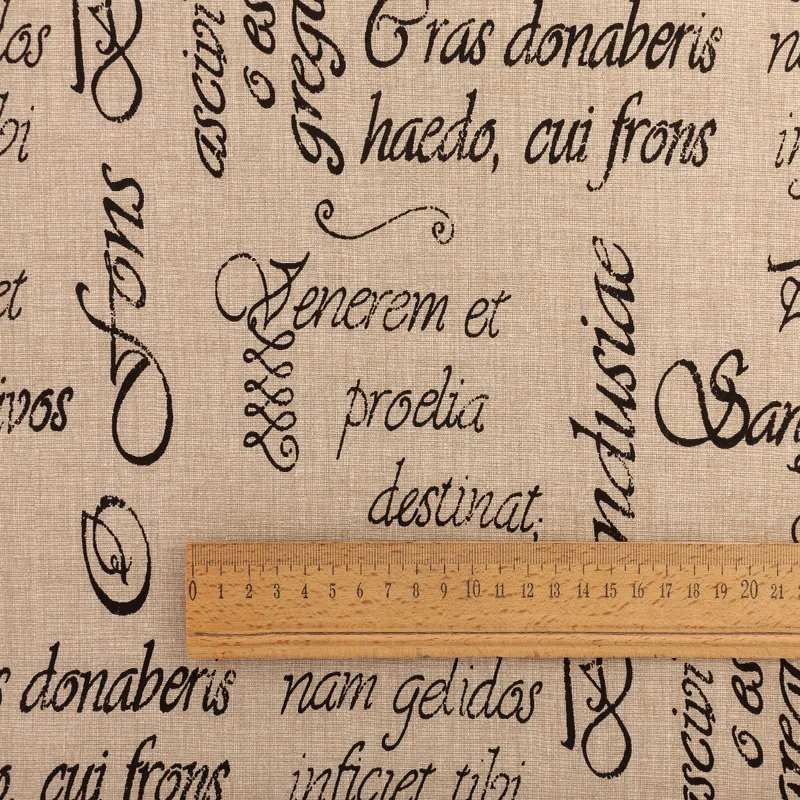 Cras donaberis
haedo, cui frons
Venerem et
proelia
destinat;
O fons
ndusiae
ascivi
o es
gregi
dos
bi
et
ivos
San
0 1 2 3 4 5 6 7 8 9 10 11 12 13 14 15 16 17 18 19 20 21
s donaberis
o, cui frons
nam gelidos
inficiet tibi
scivi
o es